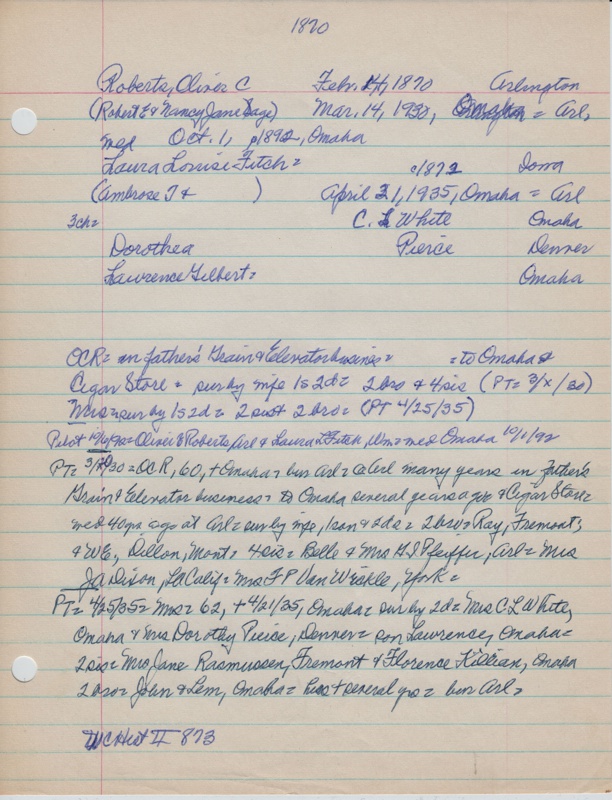 1870
Roberts, Oliver C Febr. 14, 1870 Arlington
(Robert E & Nancy Jane Gage) Mar. 14, 1930, Omaha = Arl,
med Oct. 1, 1892, Omaha
Laura Louise Fitch = c/1872 Iowa
(Ambrose T & ) April 21, 1935, Omaha = Arl
3ch = C. L. White Omaha
Dorothea Pierce Denver
Lawrence Gilbert = Omaha
OCR = in father's Grain & Elevator business = = to Omaha &
Cigar Store = sur by wife 1s 2d = 2 bro & 4 sis (PT = 3/x/30)
Mrs = sur by 1s 2d = 2 sis & 2 bro = (PT 4/25/35)
Pilot 10/ /92 = Oliver C Roberts, Arl & Laura L Fitch, Wm = med Omaha 10/1/92
PT = 3/ /30 = OCR, 60, + Omaha = bur Arl = @ Arl many years in father's
Grain & Elevator business = to Omaha several years ago & Cigar Store =
med 40 yrs ago at Arl = sur by wife, 1 son & 2ds = 2 bro = Ray, Fremont,
& WE, Dillon, Mont = 4 sis = Belle & Mrs H I Pfeiffer, Arl = Mrs
J A Dixon, LA Calif = Mrs F P Van Wickle, York =
PT = 4/25/35 = Mrs = 62, + 4/21/35, Omaha = sur by 2d = Mrs C L White,
Omaha & Mrs Dorothy Pierce, Denver = son Lawrence, Omaha =
2 sis = Mrs Jane Rasmussen, Fremont & Florence Killian, Omaha
2 bro = John & Lem, Omaha = hus + several yrs = bur Arl =
WCHist II 873